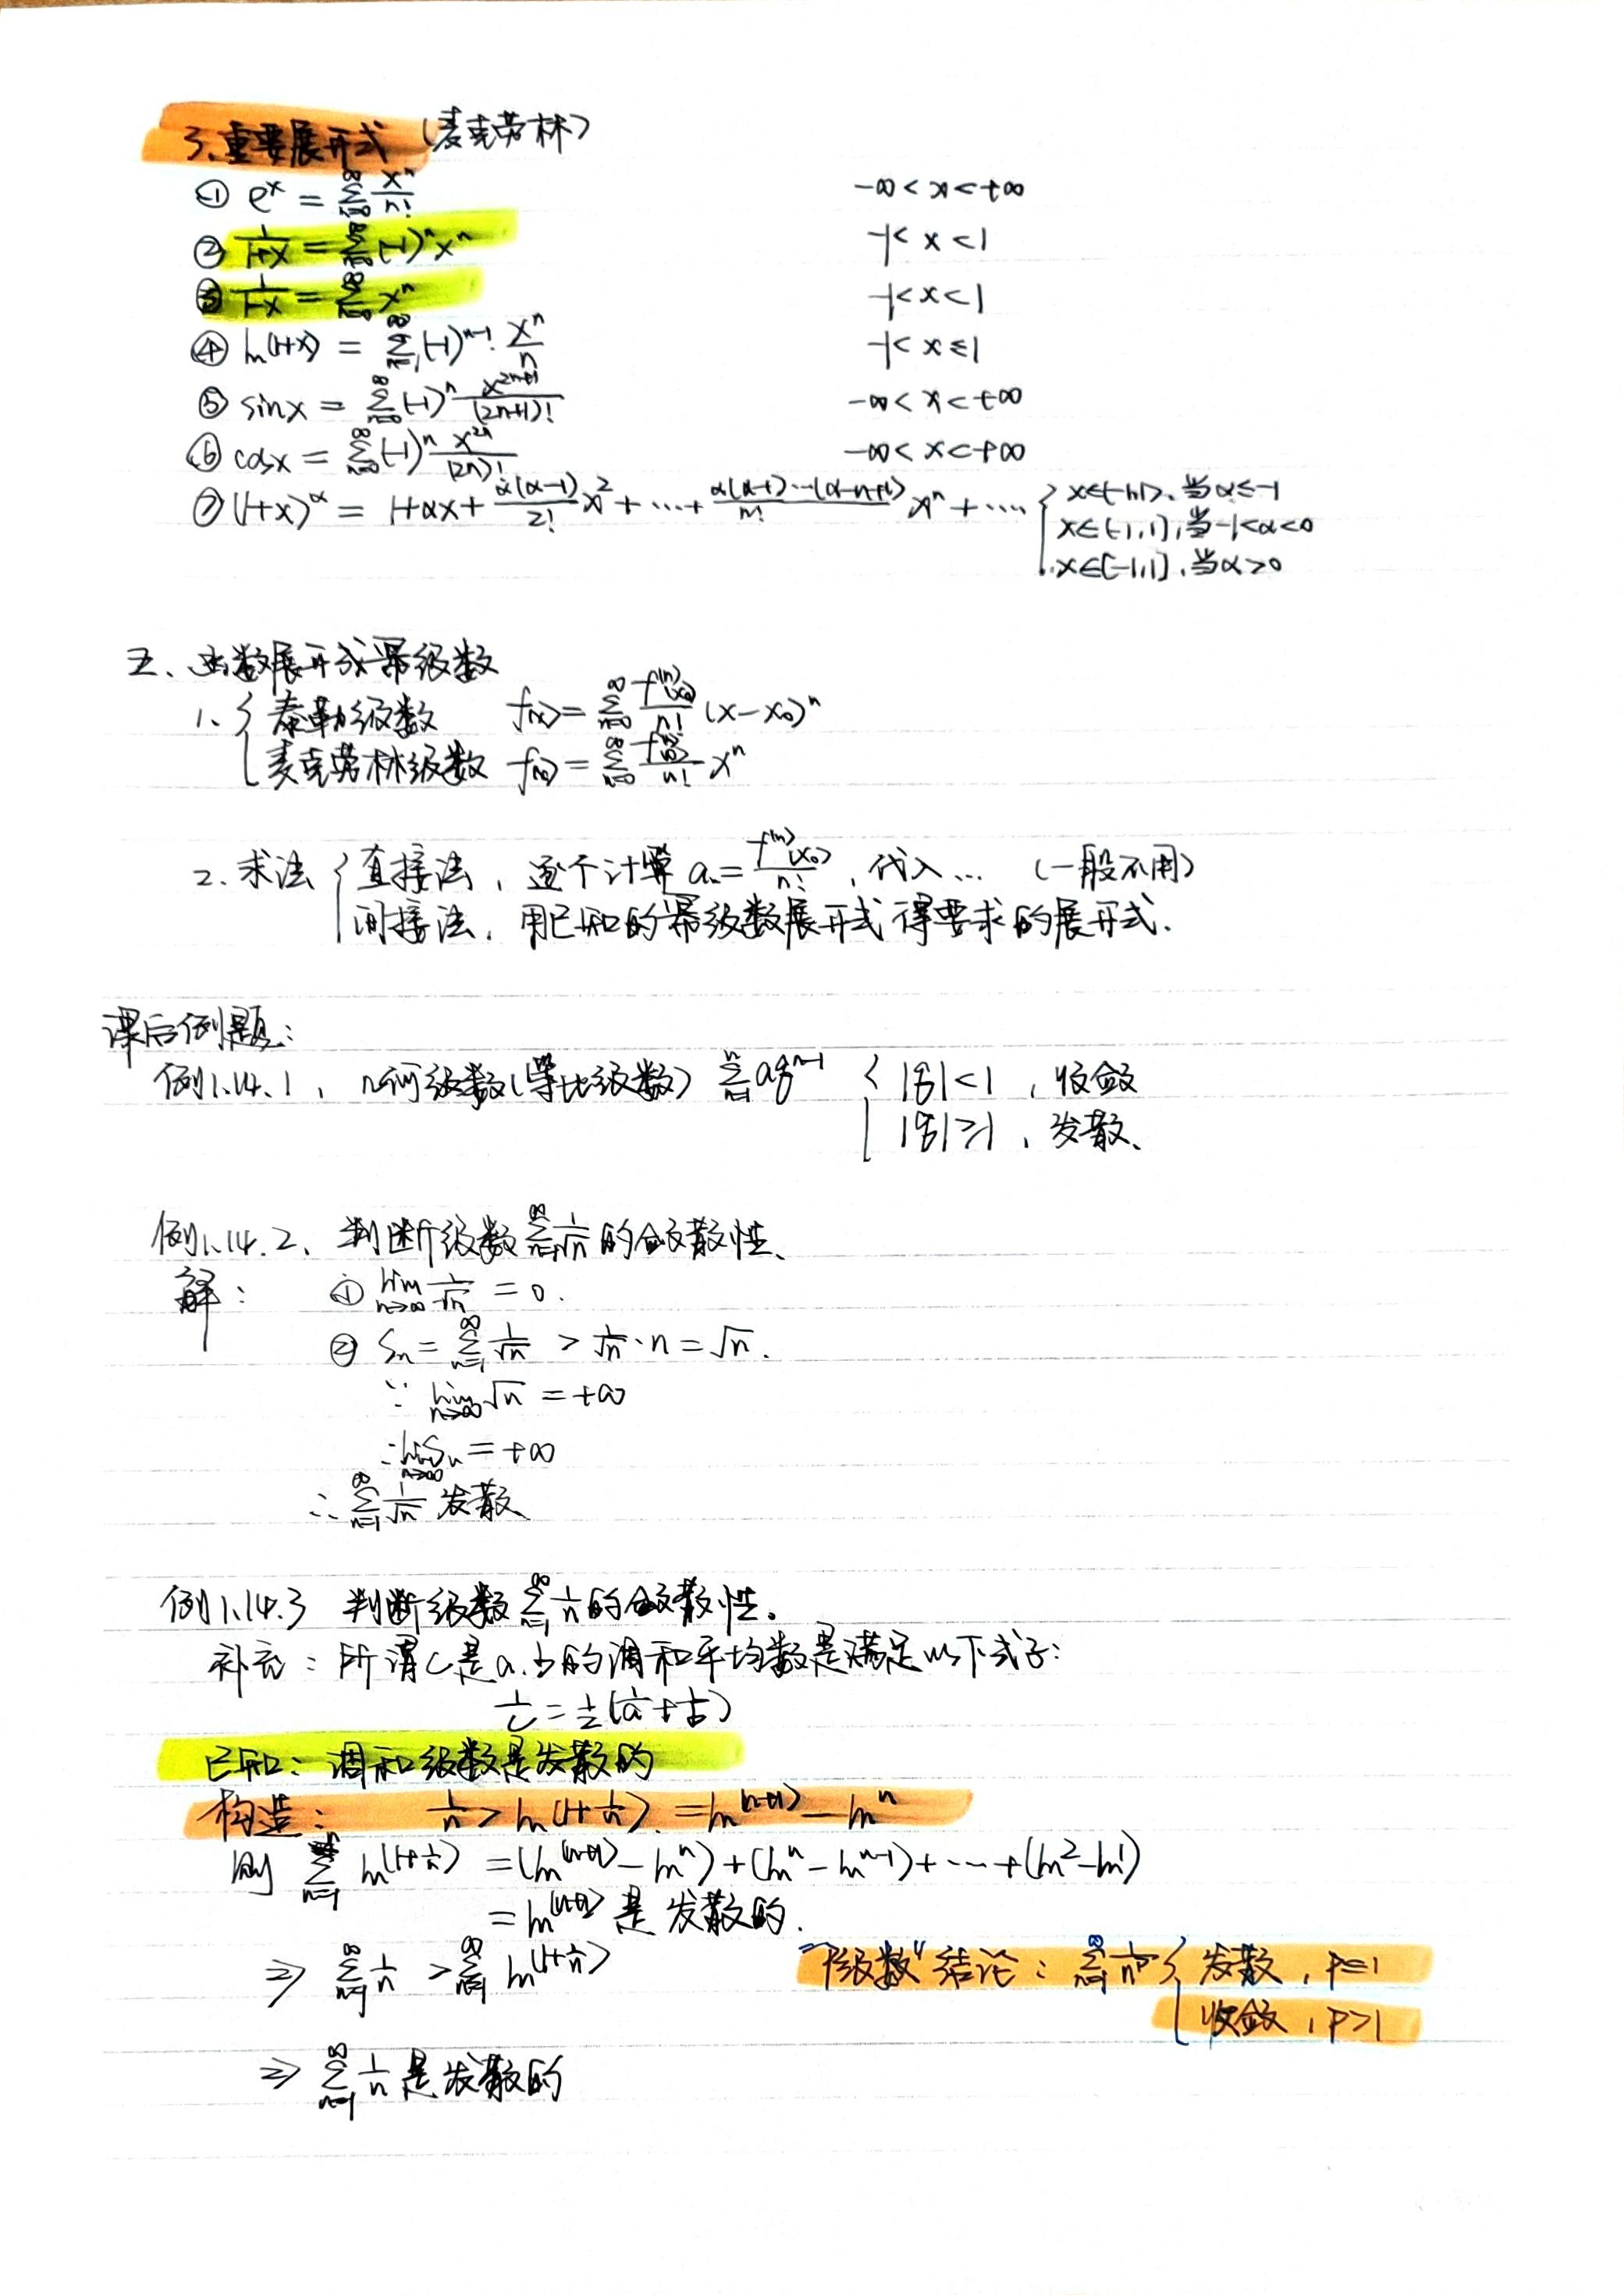 3、重要展开式 (麦克劳林)
① e^x = ∑_{n=0}^∞ x^n/n!   -∞ < x < +∞
② 1/(1+x) = ∑_{n=0}^∞ (-1)^n x^n   -1 < x < 1
③ 1/(1-x) = ∑_{n=0}^∞ x^n   -1 < x < 1
④ ln(1+x) = ∑_{n=1}^∞ (-1)^{n-1}·x^n/n   -1 < x ≤ 1
⑤ sinx = ∑_{n=0}^∞ (-1)^n x^{2n+1}/(2n+1)!   -∞ < x < +∞
⑥ cosx = ∑_{n=0}^∞ (-1)^n x^{2n}/(2n)!   -∞ < x < +∞
⑦ (1+x)^α = 1+αx+ α(α-1)/2! x^2 + ⋯ + α(α-1)⋯(α-n+1)/n! x^n + ⋯ { x∈(-1,1), 当α≤-1
x∈(-1,1], 当-1<α<0
x∈[-1,1], 当α>0
五、函数展开成幂级数
1、{ 泰勒级数   f(x) = ∑_{n=0}^∞ f^{(n)}(x₀)/n! (x-x₀)^n
麦克劳林级数   f(x) = ∑_{n=0}^∞ f^{(n)}(0)/n! x^n
2、求法 { 直接法, 逐个计算 aₙ = f^{(n)}(x₀)/n!, 代入… (一般不用)
间接法, 用已知的幂级数展开式得要求的展开式.
课后例题:
例1.14.1, 几何级数(等比级数) ∑_{n=1}^n aq^{n-1} { |q|<1, 收敛
|q|≥1, 发散、
例1.14.2、判断级数∑_{n=1}^∞ 1/√n 的敛散性、
解: ① lim_{n→∞} 1/√n = 0.
② Sₙ = ∑_{n=1}^∞ 1/√n > 1/√n·n = √n.
∵ lim_{n→∞} √n = +∞
∴ lim_{n→∞} Sₙ = +∞
∴ ∑_{n=1}^∞ 1/√n 发散
例1.14.3 判断级数∑_{n=1}^∞ 1/n 的敛散性。
补充: 所谓c是a、b的调和平均数是满足以下式子:
1/c = 1/2(1/a + 1/b)
已知: 调和级数是发散的
构造: 1/n > ln(1+1/n) = ln^{(n+1)} - ln^n
则 ∑_{n=1}^n ln^{(1+1/n)} = (ln^{(n+1)} - ln^n) + (ln^n - ln^{n-1}) + ⋯ + (ln^2 - ln^1)
= ln^{(n+1)} 是发散的.
⇒ ∑_{n=1}^∞ 1/n > ∑_{n=1}^∞ ln^{(1+1/n)}
"P级数"结论: ∑_{n=1}^∞ 1/n^p { 发散, p≤1
收敛, p>1
⇒ ∑_{n=1}^∞ 1/n 是发散的